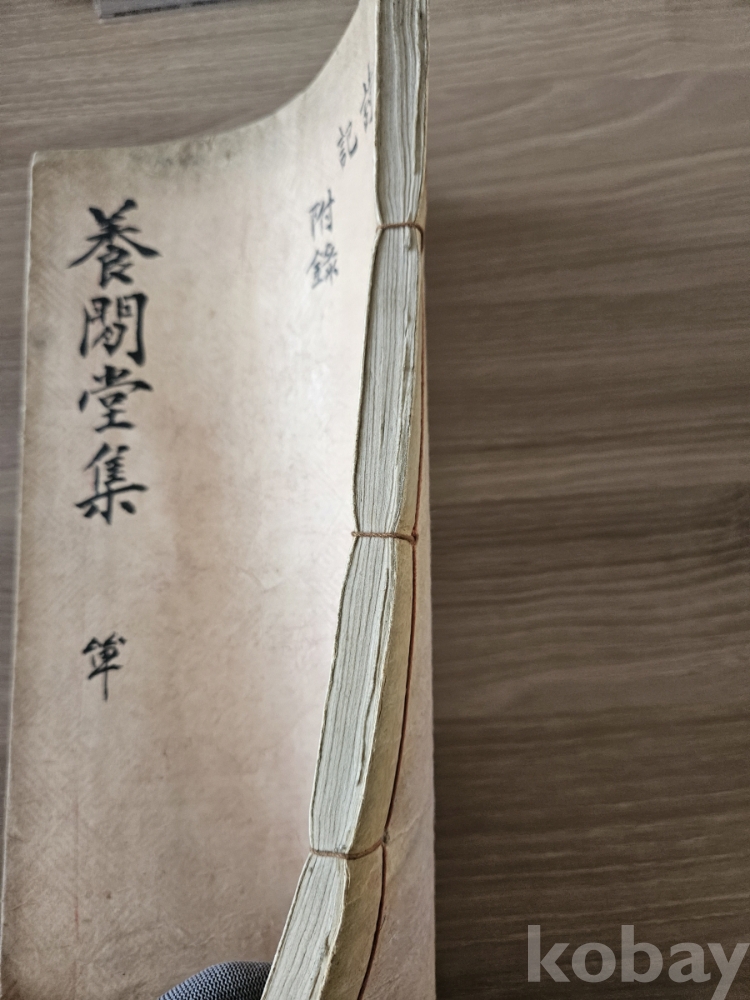 記
附錄
養閒堂集
單
kobay